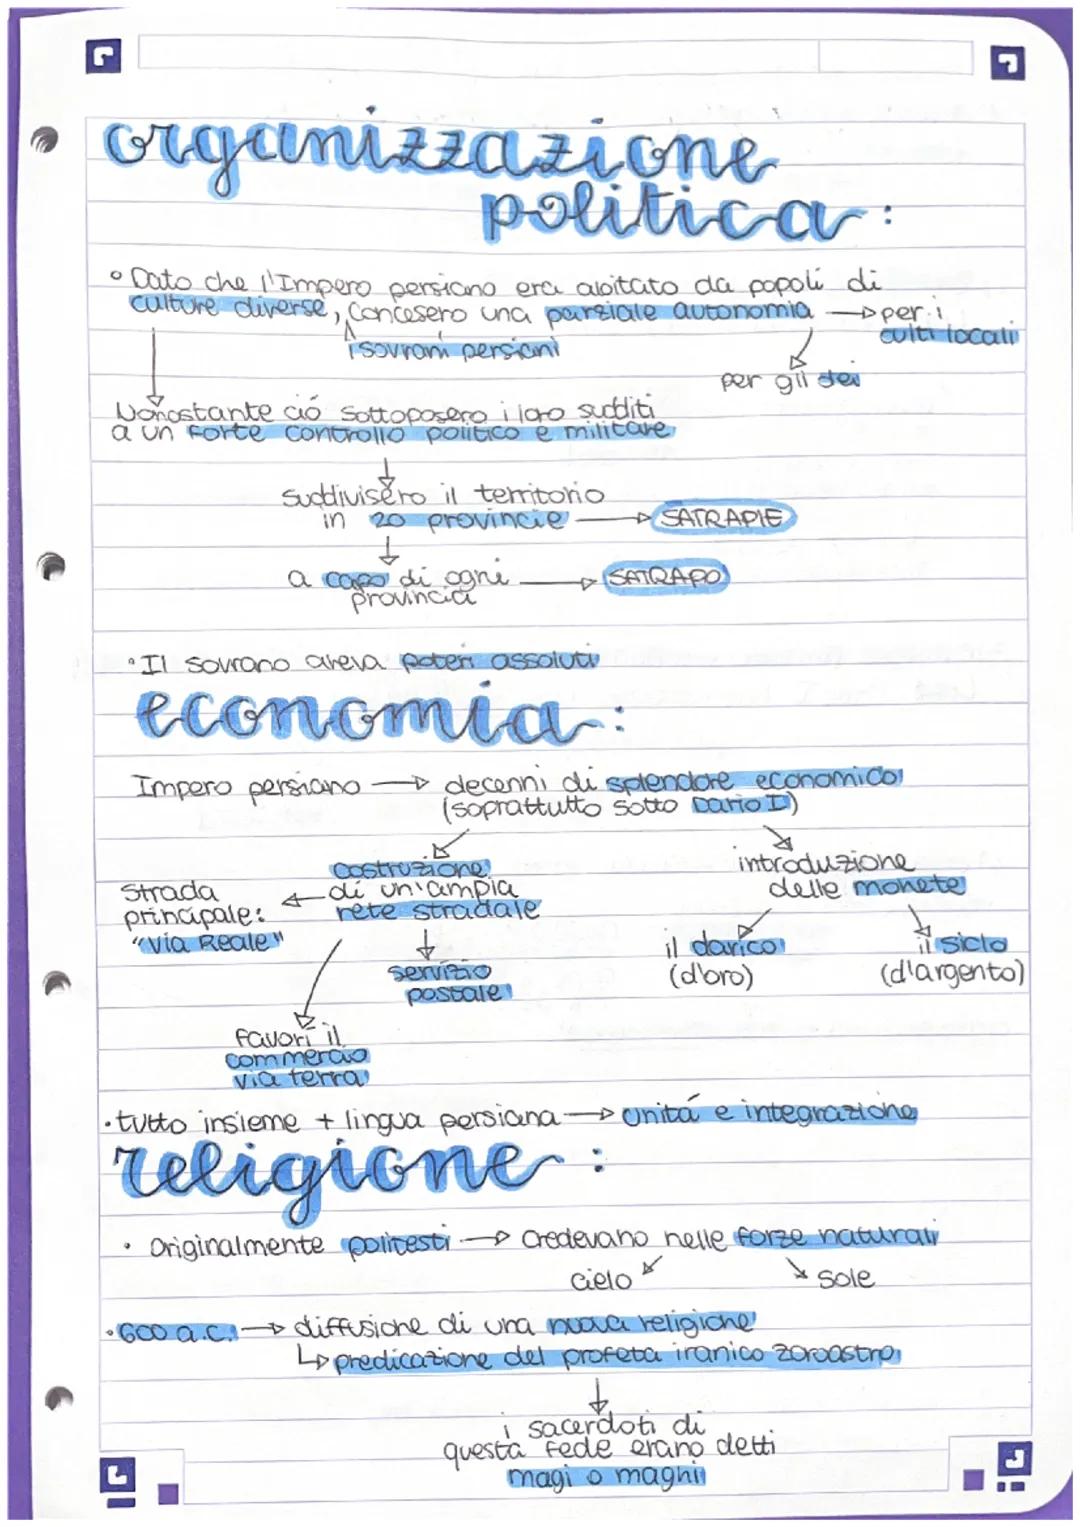 organizzazione
politica:
° Dato che l'Impero persiano era abitato da popoli di
culture diverse, concesero una parziale autonomia → per i
culti locali
i sovrani persiani
per gli dei
Nonostante ció sottoposero i loro sudditi
a un forte controllo politico e militare
suddivisero il territorio
in 20 provincie → SATRAPIE
a capo di ogni → SATRAPO
provincia
• Il sovrano aveva poteri assoluti
economia:
Impero persiano → decenni di splendore economico
(soprattutto sotto Dario I)
costruzione
di un'ampia
rete stradale
introduzione
delle monete
strada
principale:
"Via Reale"
servizio
postale
il darico
(d'oro)
il siclo
(d'argento)
favorì il
commercio
via terra
• tutto insieme + lingua persiana → unitá e integrazione
religione:
• Originalmente politesti → credevano nelle forze naturali
cielo
sole
• 600 a.C. → diffusione di una nuova religione
↳ predicazione del profeta iranico Zoroastro
i sacerdoti di
questa fede erano detti
magi o maghi